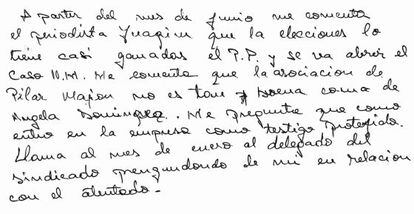 A partir del mes de junio me comenta
el periodista Joaquin que la elecciones lo
tiene casi ganados el P.P y se va abrir el
Caso 11.M. Me comenta que la asociacion de
Pilar Majon no es tan buena coma de
Angela Dominguez. Me pregunta que como
entro en la empresa como testigo protegido.
Llama al mes de enero al delegado del
sindicado pregundondo de mi en relacion
con el atentado.